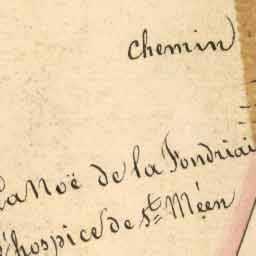 chemin
La Noë de la Fondriai
l'hospice de St Méen